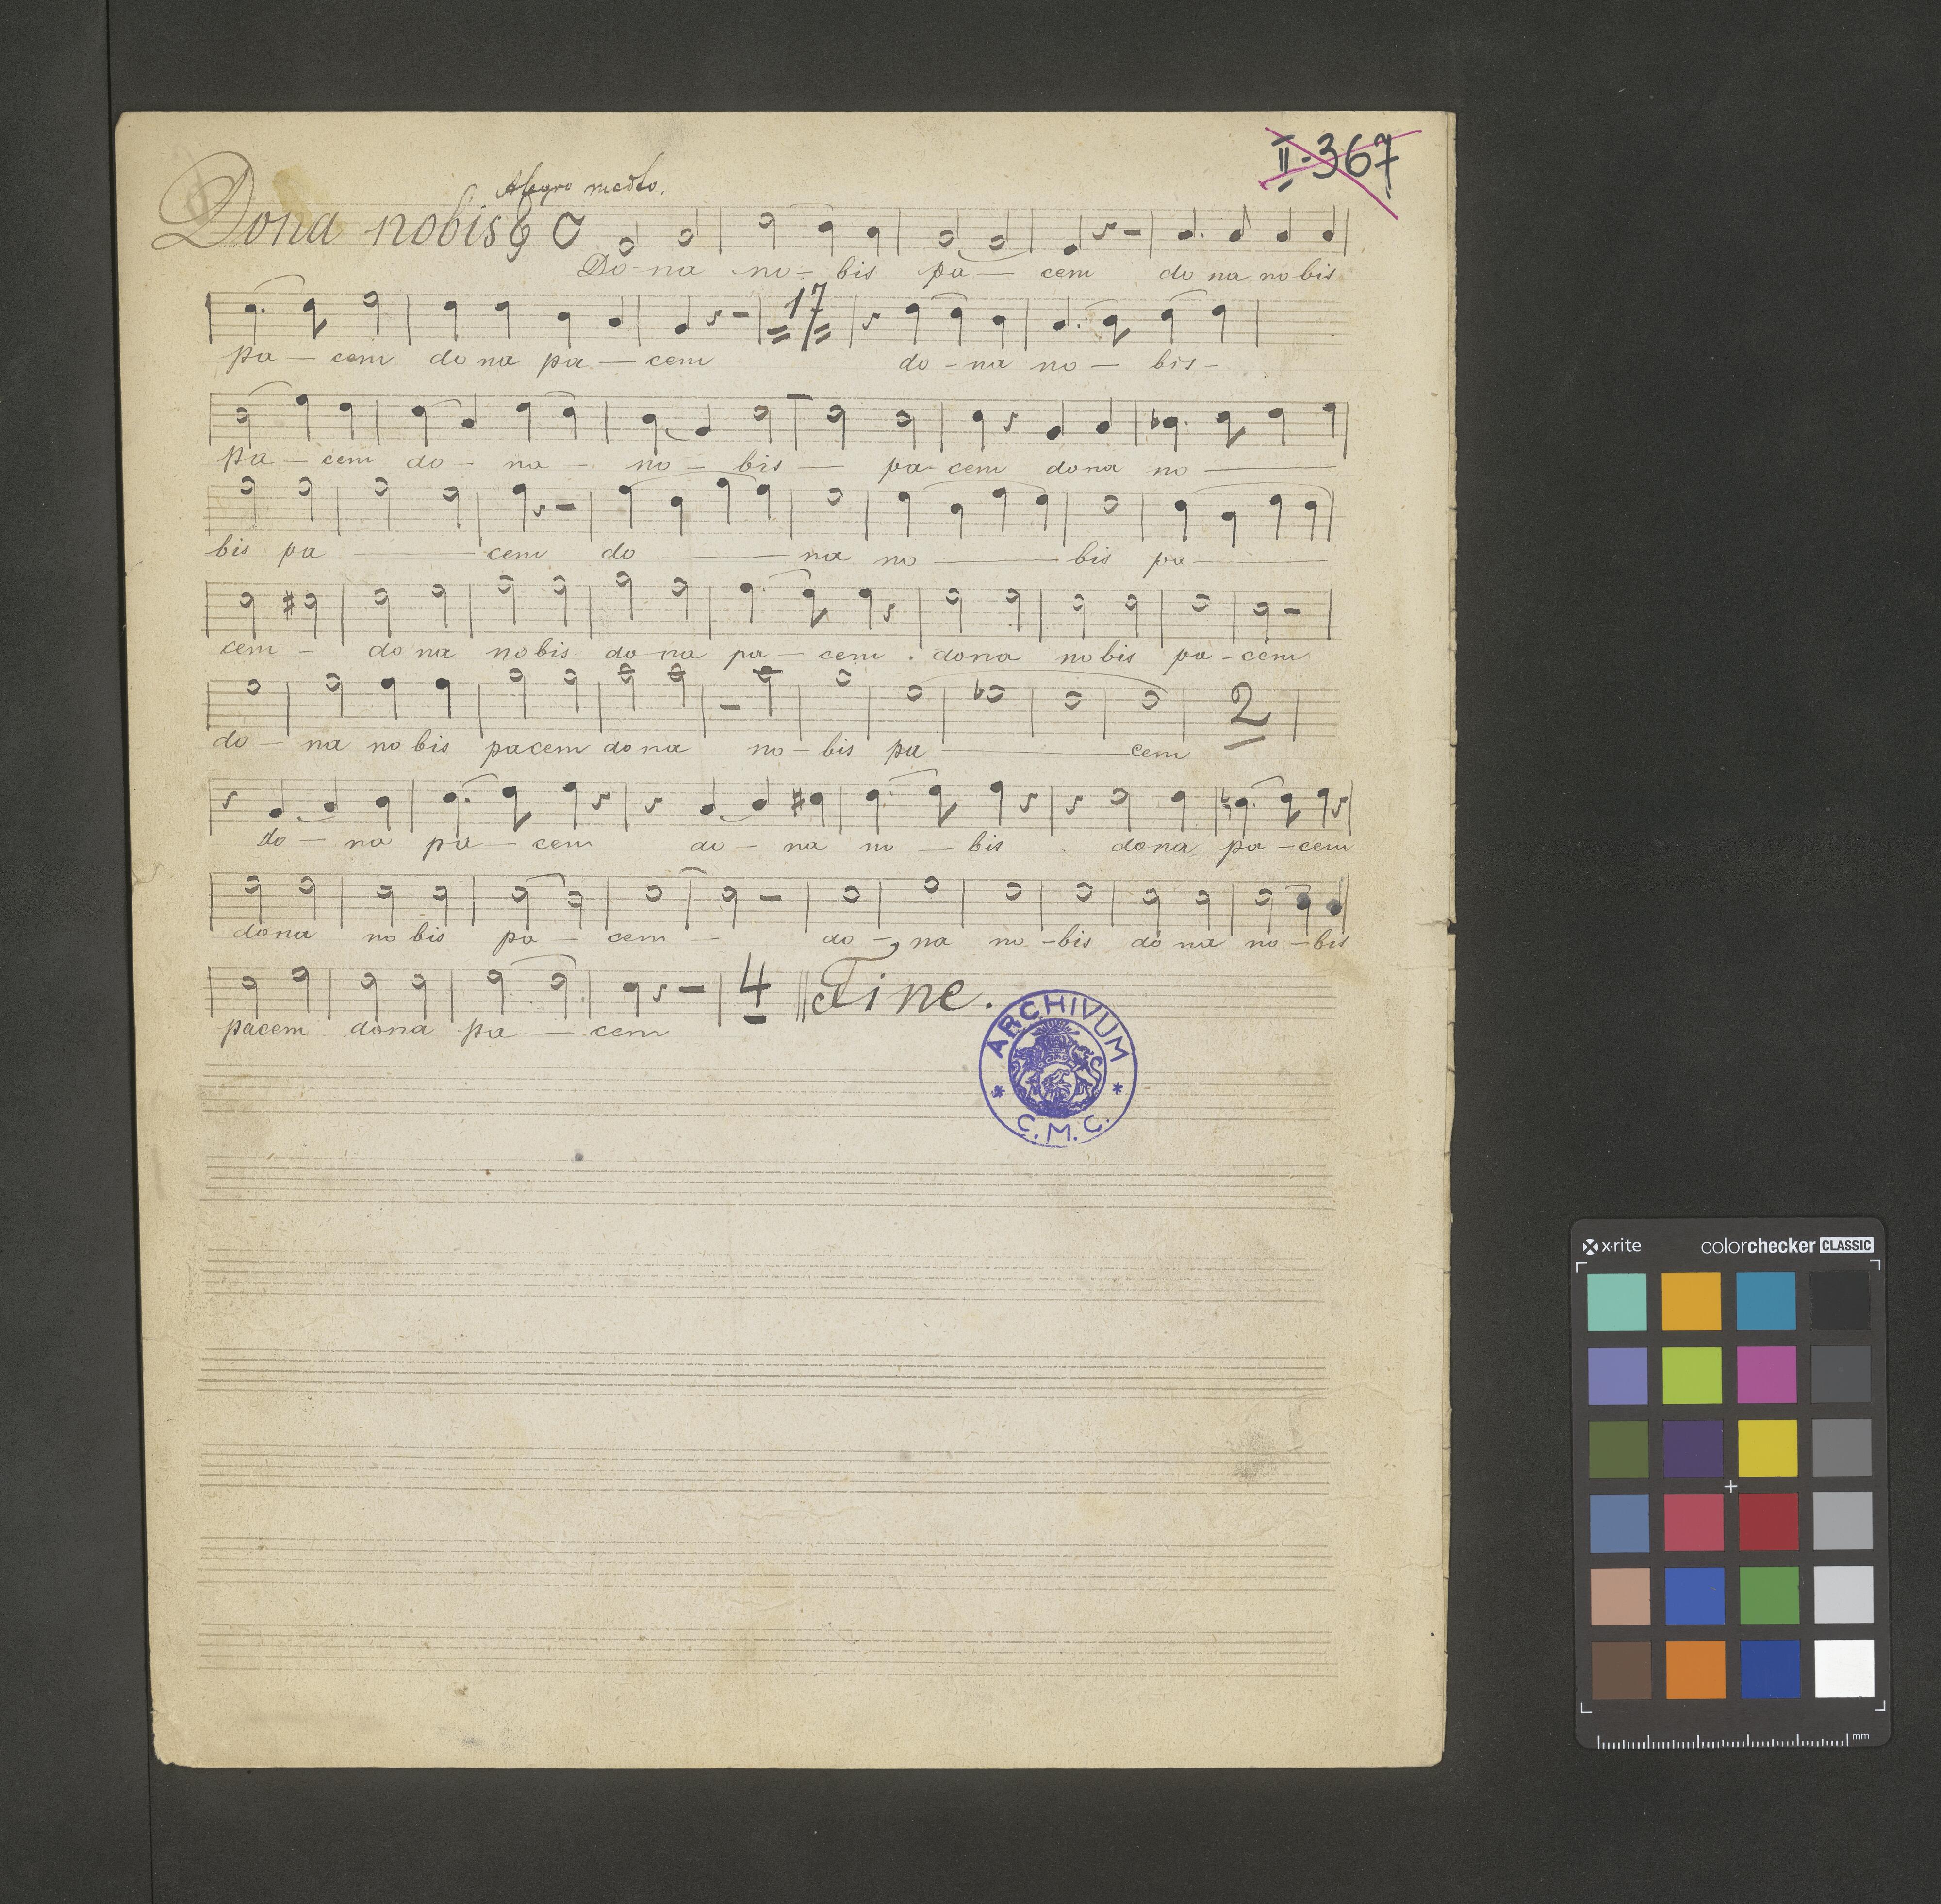 II-367
Alegro modto.
Dona nobis
Do-na no-bis pa—cem do na no bis
pa—cem do na pa—cem 17 do-na no—bis-
pa—cem do-na-no-bis—pa-cem dona no———
bis pa———cem do———na no———bis pa———
cem- do na no bis do na pa-cem. dona no bis pa-cem
do-na no bis pacem do na no-bis pa———cem 2
do—na pa-cem do-na no—bis dona pa-cem
dona no bis pa-cem- do-na no-bis do na no-bis
pacem dona pa—cem 4 Fine.
ARCHIVUM
* C.M.C. *
x·rite colorchecker CLASSIC
mm